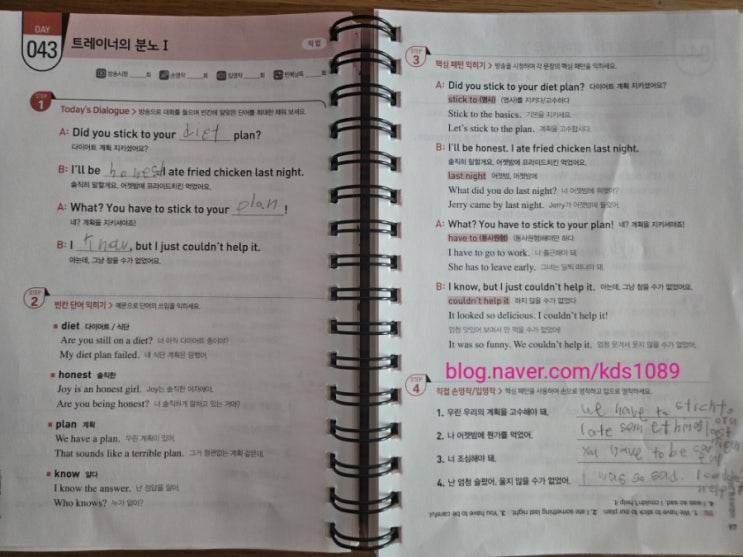 DAY
043
트레이너의 분노 I
직업
방송시청 ___회 손영작 ___회 입영작 ___회 반복낭독 ___회
STEP
1
Today's Dialogue > 방송으로 대화를 들으며 빈칸에 알맞은 단어를 최대한 채워 보세요.
A: Did you stick to your diet plan?
다이어트 계획 지키셨어요?
B: I'll be honest I ate fried chicken last night.
솔직히 말할게요. 어젯밤에 프라이드치킨 먹었어요.
A: What? You have to stick to your plan!
네? 계획을 지키셔야죠!
B: I know, but I just couldn't help it.
아는데, 그냥 참을 수가 없었어요.
STEP
2
빈칸 단어 익히기 > 예문으로 단어의 쓰임을 익히세요.
diet 다이어트 / 식단
Are you still on a diet? 너 아직 다이어트 중이야?
My diet plan failed. 내 식단 계획은 망했어.
honest 솔직한
Joy is an honest girl. Joy는 솔직한 여자애야.
Are you being honest? 너 솔직하게 말하고 있는 거야?
plan 계획
We have a plan. 우린 계획이 있어.
That sounds like a terrible plan. 그거 형편없는 계획 같은데.
know 알다
I know the answer. 난 정답을 알아.
Who knows? 누가 알아?
STEP
3
핵심 패턴 익히기 > 방송을 시청하며 각 문장의 핵심 패턴을 익히세요.
A: Did you stick to your diet plan? 다이어트 계획 지키셨어요?
stick to (명사) (명사)를 지키다/고수하다
Stick to the basics. 기본을 지키세요.
Let's stick to the plan. 계획을 고수합시다.
B: I'll be honest. I ate fried chicken last night.
솔직히 말할게요. 어젯밤에 프라이드치킨 먹었어요.
last night 어젯밤, 어젯밤에
What did you do last night? 너 어젯밤에 뭐했어?
Jerry came by last night. Jerry가 어젯밤에 들렀어.
A: What? You have to stick to your plan! 네? 계획을 지키셔야죠!
have to (동사원형) (동사원형)해야만 하다
I have to go to work. 나 출근해야 돼.
She has to leave early. 그녀는 일찍 떠나야 돼.
B: I know, but I just couldn't help it. 아는데, 그냥 참을 수가 없었어요.
couldn't help it 하지 않을 수가 없었다
It looked so delicious. I couldn't help it!
엄청 맛있어 보여서 안 먹을 수가 없었어!
It was so funny. We couldn't help it. 엄청 웃겨서 웃지 않을 수가 없었어.
blog.naver.com/kds1089
STEP
4
직접 손영작/입영작 > 핵심 패턴을 사용하며 손으로 영작하고 입으로 영작하세요.
1. 우린 우리의 계획을 고수해야 돼. we have to stick to
2. 나 어젯밤에 뭔가를 먹었어. I ate something last
3. 너 조심해야 돼. You have to be
4. 난 엄청 슬펐어. 울지 않을 수가 없었어. I was so sad. I
1. We have to stick to our plan. 2. I ate something last night. 3. You have to be careful.
4. I was so sad. I couldn't help it.